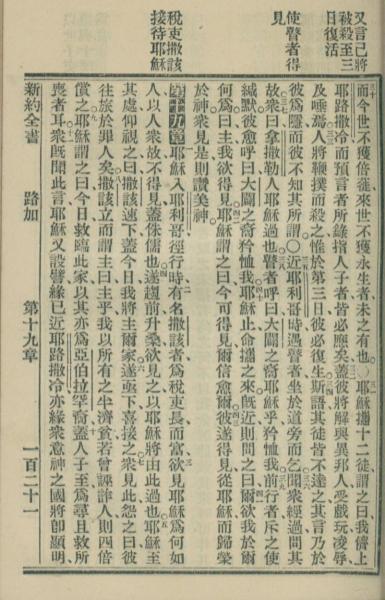 又言己將
被殺至三
日復活
使瞽者得
見
稅吏撒該
接待耶穌
而今世不獲倍蓰來世不獲永生者未之有也○耶穌攜十二徒謂之曰我儕上
耶路撒冷而預言者所錄指人子者皆必應矣蓋彼將解與異邦人受戲玩凌辱
及唾焉人將鞭撲而殺之惟於第三日彼必復生斯語其徒皆不達之其言乃於
彼爲隱而彼不知其所謂○近耶利哥時遇瞽者坐於道旁而乞聞衆經過問其
故衆曰拿撒勒人耶穌過也瞽者呼曰大闢之裔耶穌乎矜恤我前行者斥之使
緘默彼愈呼曰大闢之裔矜恤我耶穌止命攜之來旣近則問之曰爾欲我於爾
何爲曰主我欲得見耶穌謂之曰今可得見爾信愈爾彼遂得見從耶穌而歸榮
於神衆見是則讚美神
第十九章耶穌入耶利哥徑行時有名撒該者爲稅吏長而富欲見耶穌爲何如
人以人衆故不得見蓋侏儒也遂趨前升桑欲見之以耶穌將由此過也耶穌至
其處仰視之曰撒該速下蓋今日我將主爾家遂亟下喜接之衆見此怨之曰彼
往旅於罪人矣撒該立而謂主曰主乎我以所有之半濟貧若曾誣詐人則四倍
償之耶穌謂之曰今日救臨此家以其亦爲亞伯拉罕裔蓋人子至爲尋且救所
喪者耳衆旣聞此言耶穌又設譬緣已近耶路撒冷亦緣衆意神之國將卽顯明
新約全書 路加 第十九章 一百二十一